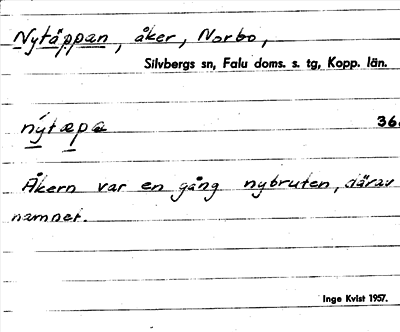 Nytäppan, åker, Norbo,
Silvbergs sn, Falu doms. s. tg, Kopp. län.
nýtæpa 36
Åkern var en gång nybruten, därav
namnet.
Inge Kvist 1957.